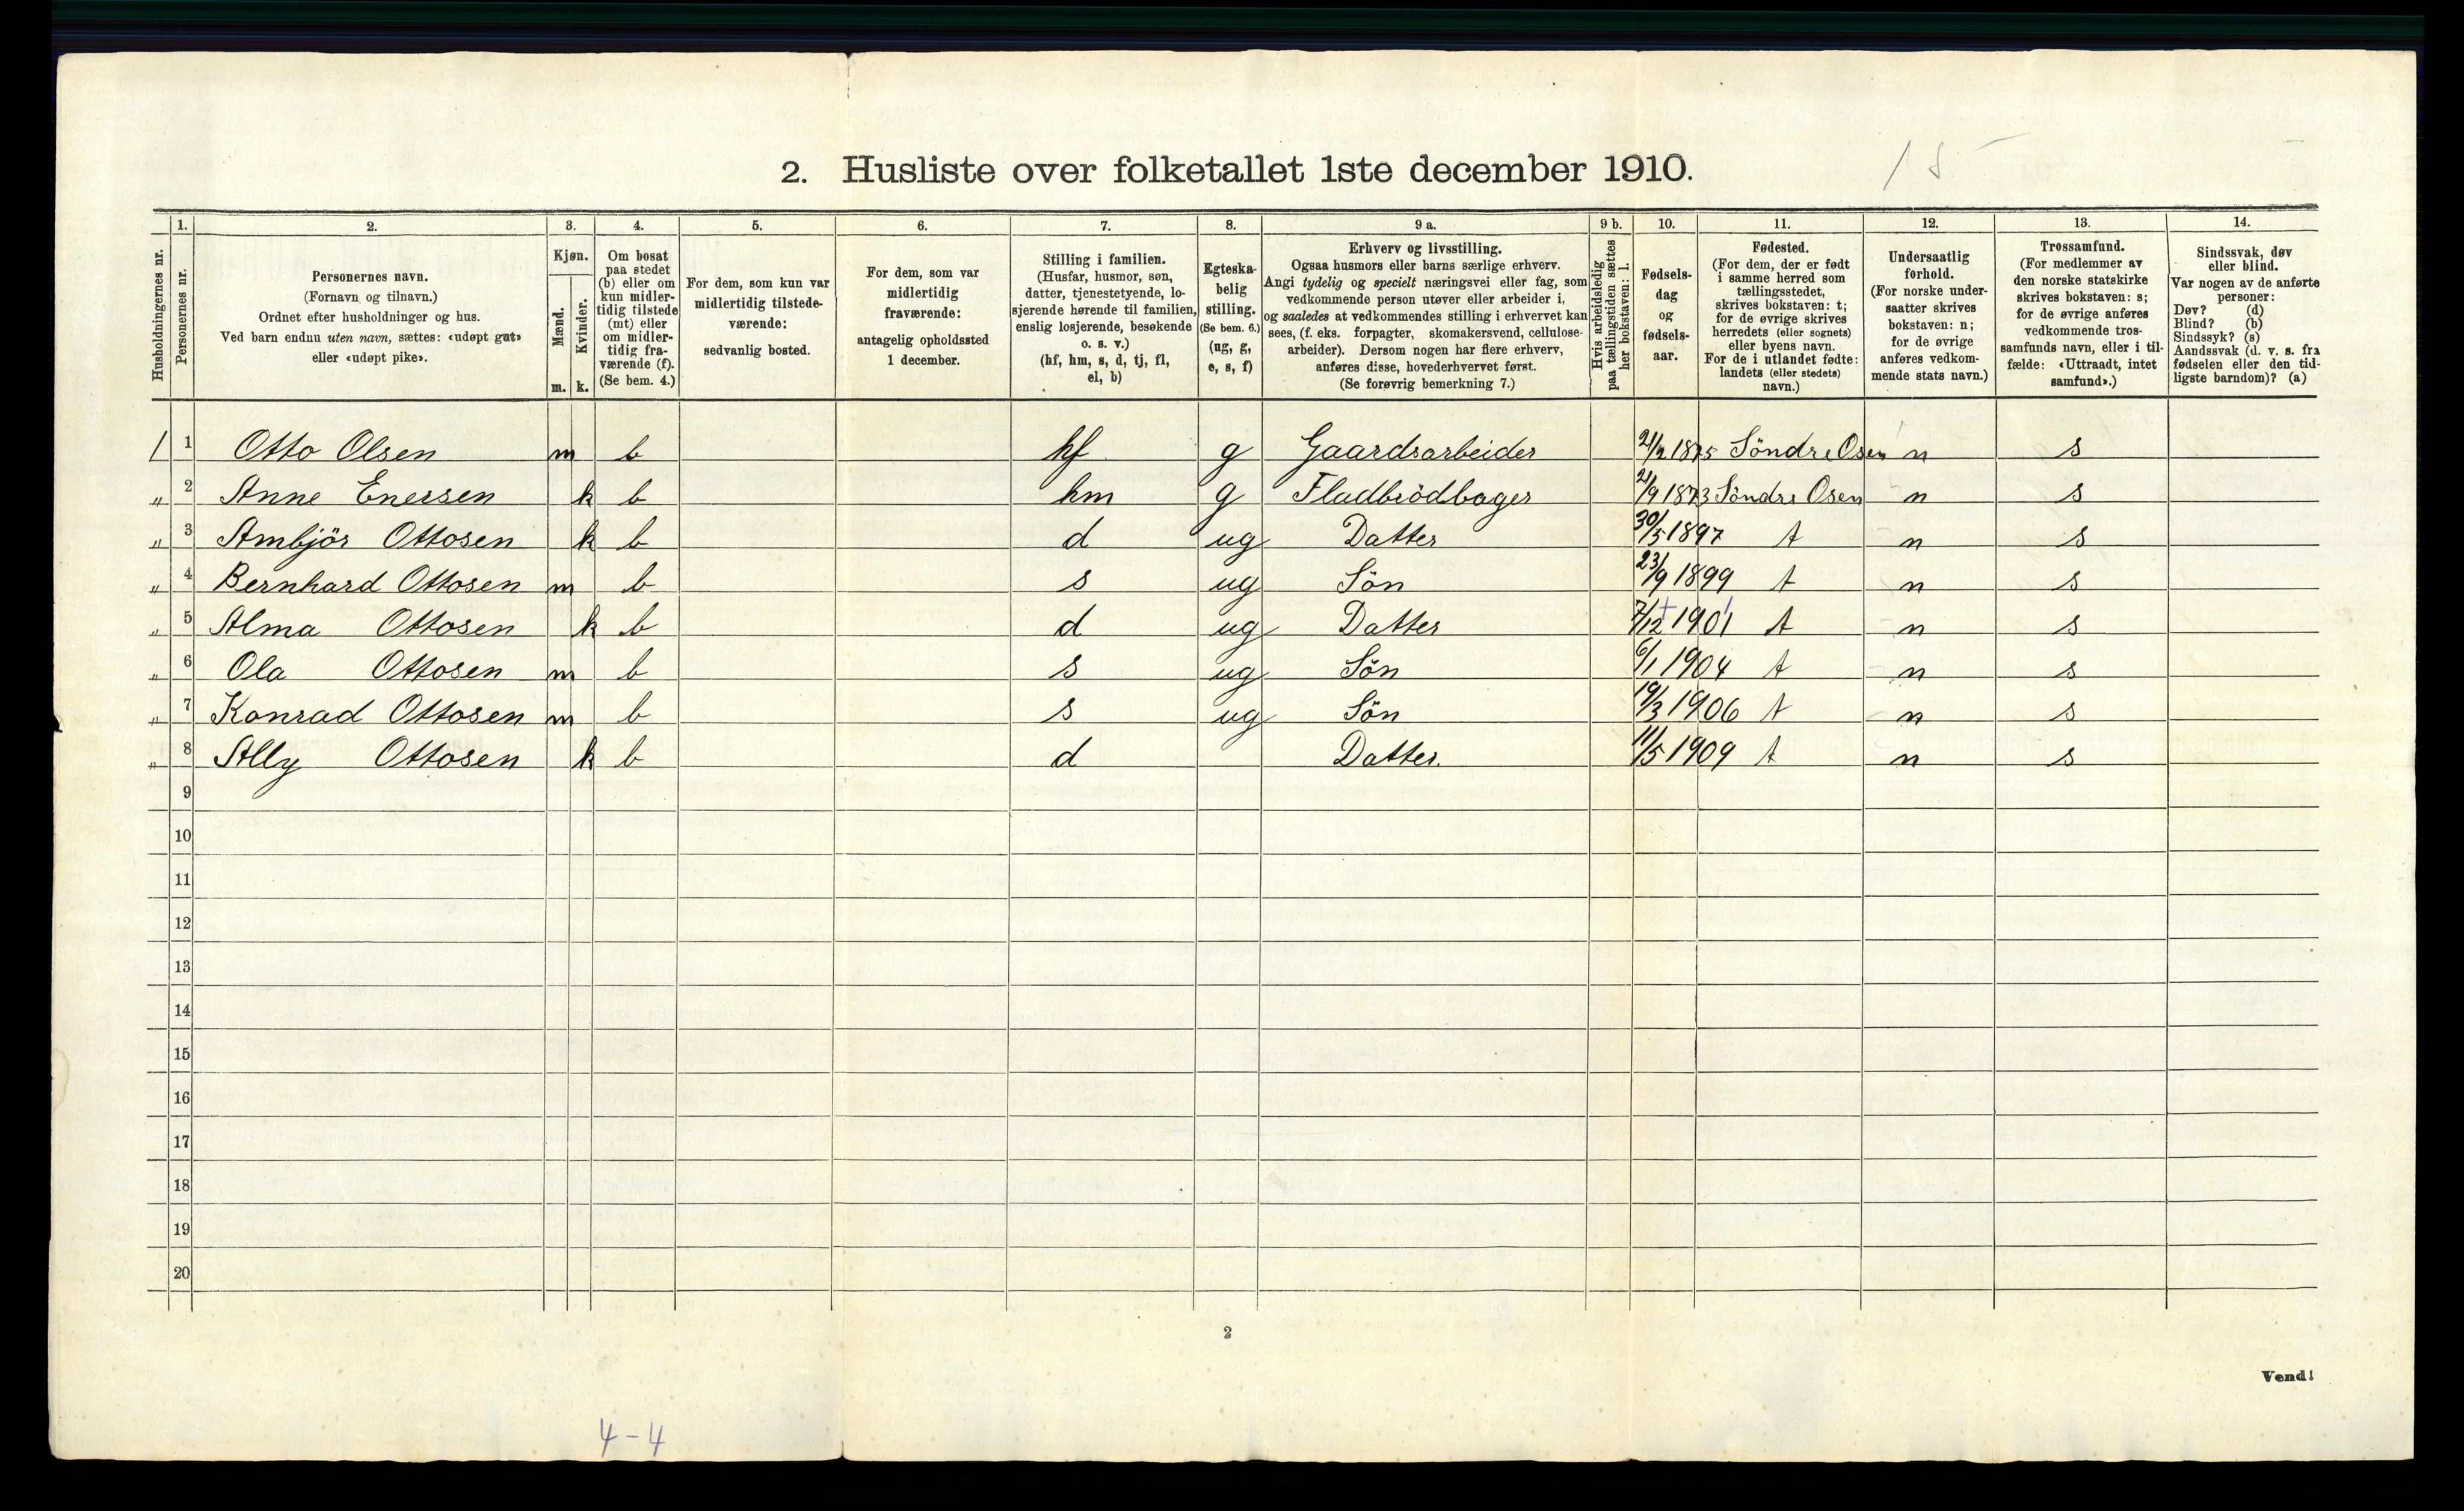 2. Husliste over folketallet 1ste december 1910.
15
Husholdningernes nr.
1. Personernes nr.
2. Personernes navn.
(Fornavn og tilnavn.)
Ordnet efter husholdninger og hus.
Ved barn endnu uten navn, sættes: «udøpt gut»
eller «udøpt pike».
3. Kjøn.
Mænd. m.
Kvinder. k.
4. Om bosat
paa stedet
(b) eller om
kun midler-
tidig tilstede
(mt) eller
om midler-
tidig fra-
værende (f).
(Se bem. 4.)
5. For dem, som kun var
midlertidig tilstede-
værende:
sedvanlig bosted.
6. For dem, som var
midlertidig
fraværende:
antagelig opholdssted
1 december.
7. Stilling i familien.
(Husfar, husmor, søn,
datter, tjenestetyende, lo-
sjerende hørende til familien,
enslig losjerende, besøkende
o. s. v.)
(hf, hm, s, d, tj, fl,
el, b)
8. Egteska-
belig
stilling.
(Se bem. 6.)
(ug, g,
e, s, f)
9 a. Erhverv og livsstilling.
Ogsaa husmors eller barns særlige erhverv.
Angi tydelig og specielt næringsvei eller fag, som
vedkommende person utøver eller arbeider i,
og saaledes at vedkommendes stilling i erhvervet kan
sees, (f. eks. forpagter, skomakersvend, cellulose-
arbeider). Dersom nogen har flere erhverv,
anføres disse, hovederhvervet først.
(Se forøvrig bemerkning 7.)
9 b. Hvis arbeidsledig
paa tællingstiden sættes
her bokstaven: l.
10. Fødsels-
dag
og
fødsels-
aar.
11. Fødested.
(For dem, der er født
i samme herred som
tællingsstedet,
skrives bokstaven: t;
for de øvrige skrives
herredets (eller sognets)
eller byens navn.
For de i utlandet fødte:
landets (eller stedets)
navn.)
12. Undersaatlig
forhold.
(For norske under-
saatter skrives
bokstaven: n;
for de øvrige
anføres vedkom-
mende stats navn.)
13. Trossamfund.
(For medlemmer av
den norske statskirke
skrives bokstaven: s;
for de øvrige anføres
vedkommende tros-
samfunds navn, eller i til-
fælde: «Uttraadt, intet
samfund».)
14. Sindssvak, døv
eller blind.
Var nogen av de anførte
personer:
Døv? (d)
Blind? (b)
Sindssyk? (s)
Aandssvak (d. v. s. fra
fødselen eller den tid-
ligste barndom)? (a)
1 1 Otto Olsen m b hf g Gaardsarbeider 21/2 1875 Söndre Osen n s
" 2 Anne Enersen k b hm g Fladbrödbager 21/9 1873 Söndre Osen n s
" 3 Ambjör Ottosen k b d ug Datter 30/5 1897 t n s
" 4 Bernhard Ottosen m b s ug Sön 23/9 1899 t n s
" 5 Alma Ottosen k b d ug Datter 7/12 1901 t n s
" 6 Ola Ottosen m b s ug Sön 6/1 1904 t n s
" 7 Konrad Ottosen m b s ug Sön 19/3 1906 t n s
" 8 Ally Ottosen k b d Datter. 11/5 1909 t n s
9
10
11
12
13
14
15
16
17
18
19
20
2
Vend!
4-4